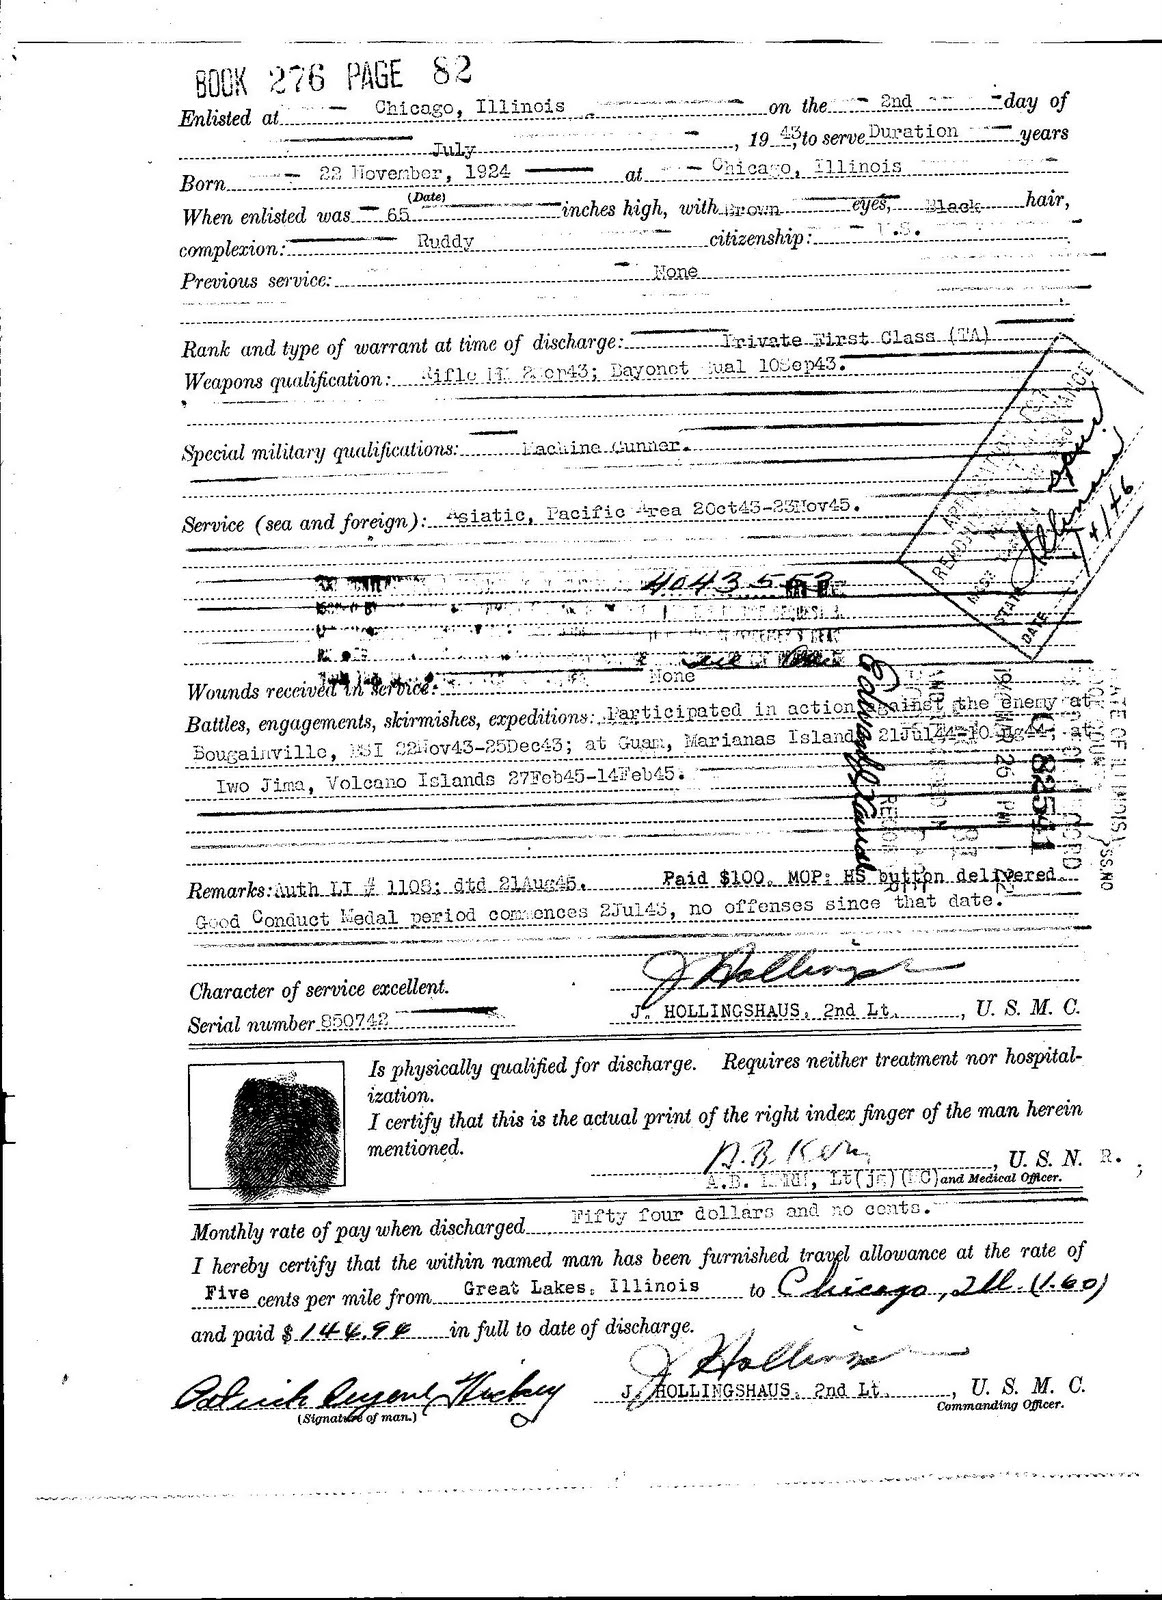 BOOK 276 PAGE 82
Enlisted at Chicago, Illinois on the 2nd day of
July, 19 43, to serve Duration years
Born 22 November, 1924 at Chicago, Illinois
(Date)
When enlisted was 65 inches high, with Brown eyes, Black hair,
complexion: Ruddy citizenship: U.S.
Previous service: None
Rank and type of warrant at time of discharge: Private First Class (TA)
Weapons qualification: Rifle 43; Bayonet Qual 10Sep43.
Special military qualifications: Machine Gunner.
Service (sea and foreign): Asiatic, Pacific Area 20ct43-23Nov45.
4043553
Wounds received in service: None
Battles, engagements, skirmishes, expeditions: Participated in action against the enemy at
Bougainville, BSI 22Nov43-25Dec43; at Guam, Marianas Islands 21Jul44-10Aug44; at
Iwo Jima, Volcano Islands 27Feb45-14Feb45.
STATE OF ILLINOIS
SS. NO
82541
1946 MAR 26 PM
STATE Illinois
DATE 4/1/46
Remarks: Auth LI # 1108; dtd 21Aug45. Paid $100. MOP: HS button delivered.
Good Conduct Medal period commences 2Jul43, no offenses since that date.
Character of service excellent.
J Hollingshaus
Serial number 850742 J. HOLLINGSHAUS, 2nd Lt., U. S. M. C.
Is physically qualified for discharge. Requires neither treatment nor hospital-
ization.
I certify that this is the actual print of the right index finger of the man herein
mentioned.
A.B. Kern, U. S. N. R.
A.B. , Lt(jg)(MC) and Medical Officer.
Monthly rate of pay when discharged Fifty four dollars and no cents.
I hereby certify that the within named man has been furnished travel allowance at the rate of
Five cents per mile from Great Lakes, Illinois to Chicago, Ill. (1.60)
and paid $ 144.94 in full to date of discharge.
J Hollingshaus
Patrick Eugene Hickey J. HOLLINGSHAUS, 2nd Lt., U. S. M. C.
(Signature of man.) Commanding Officer.